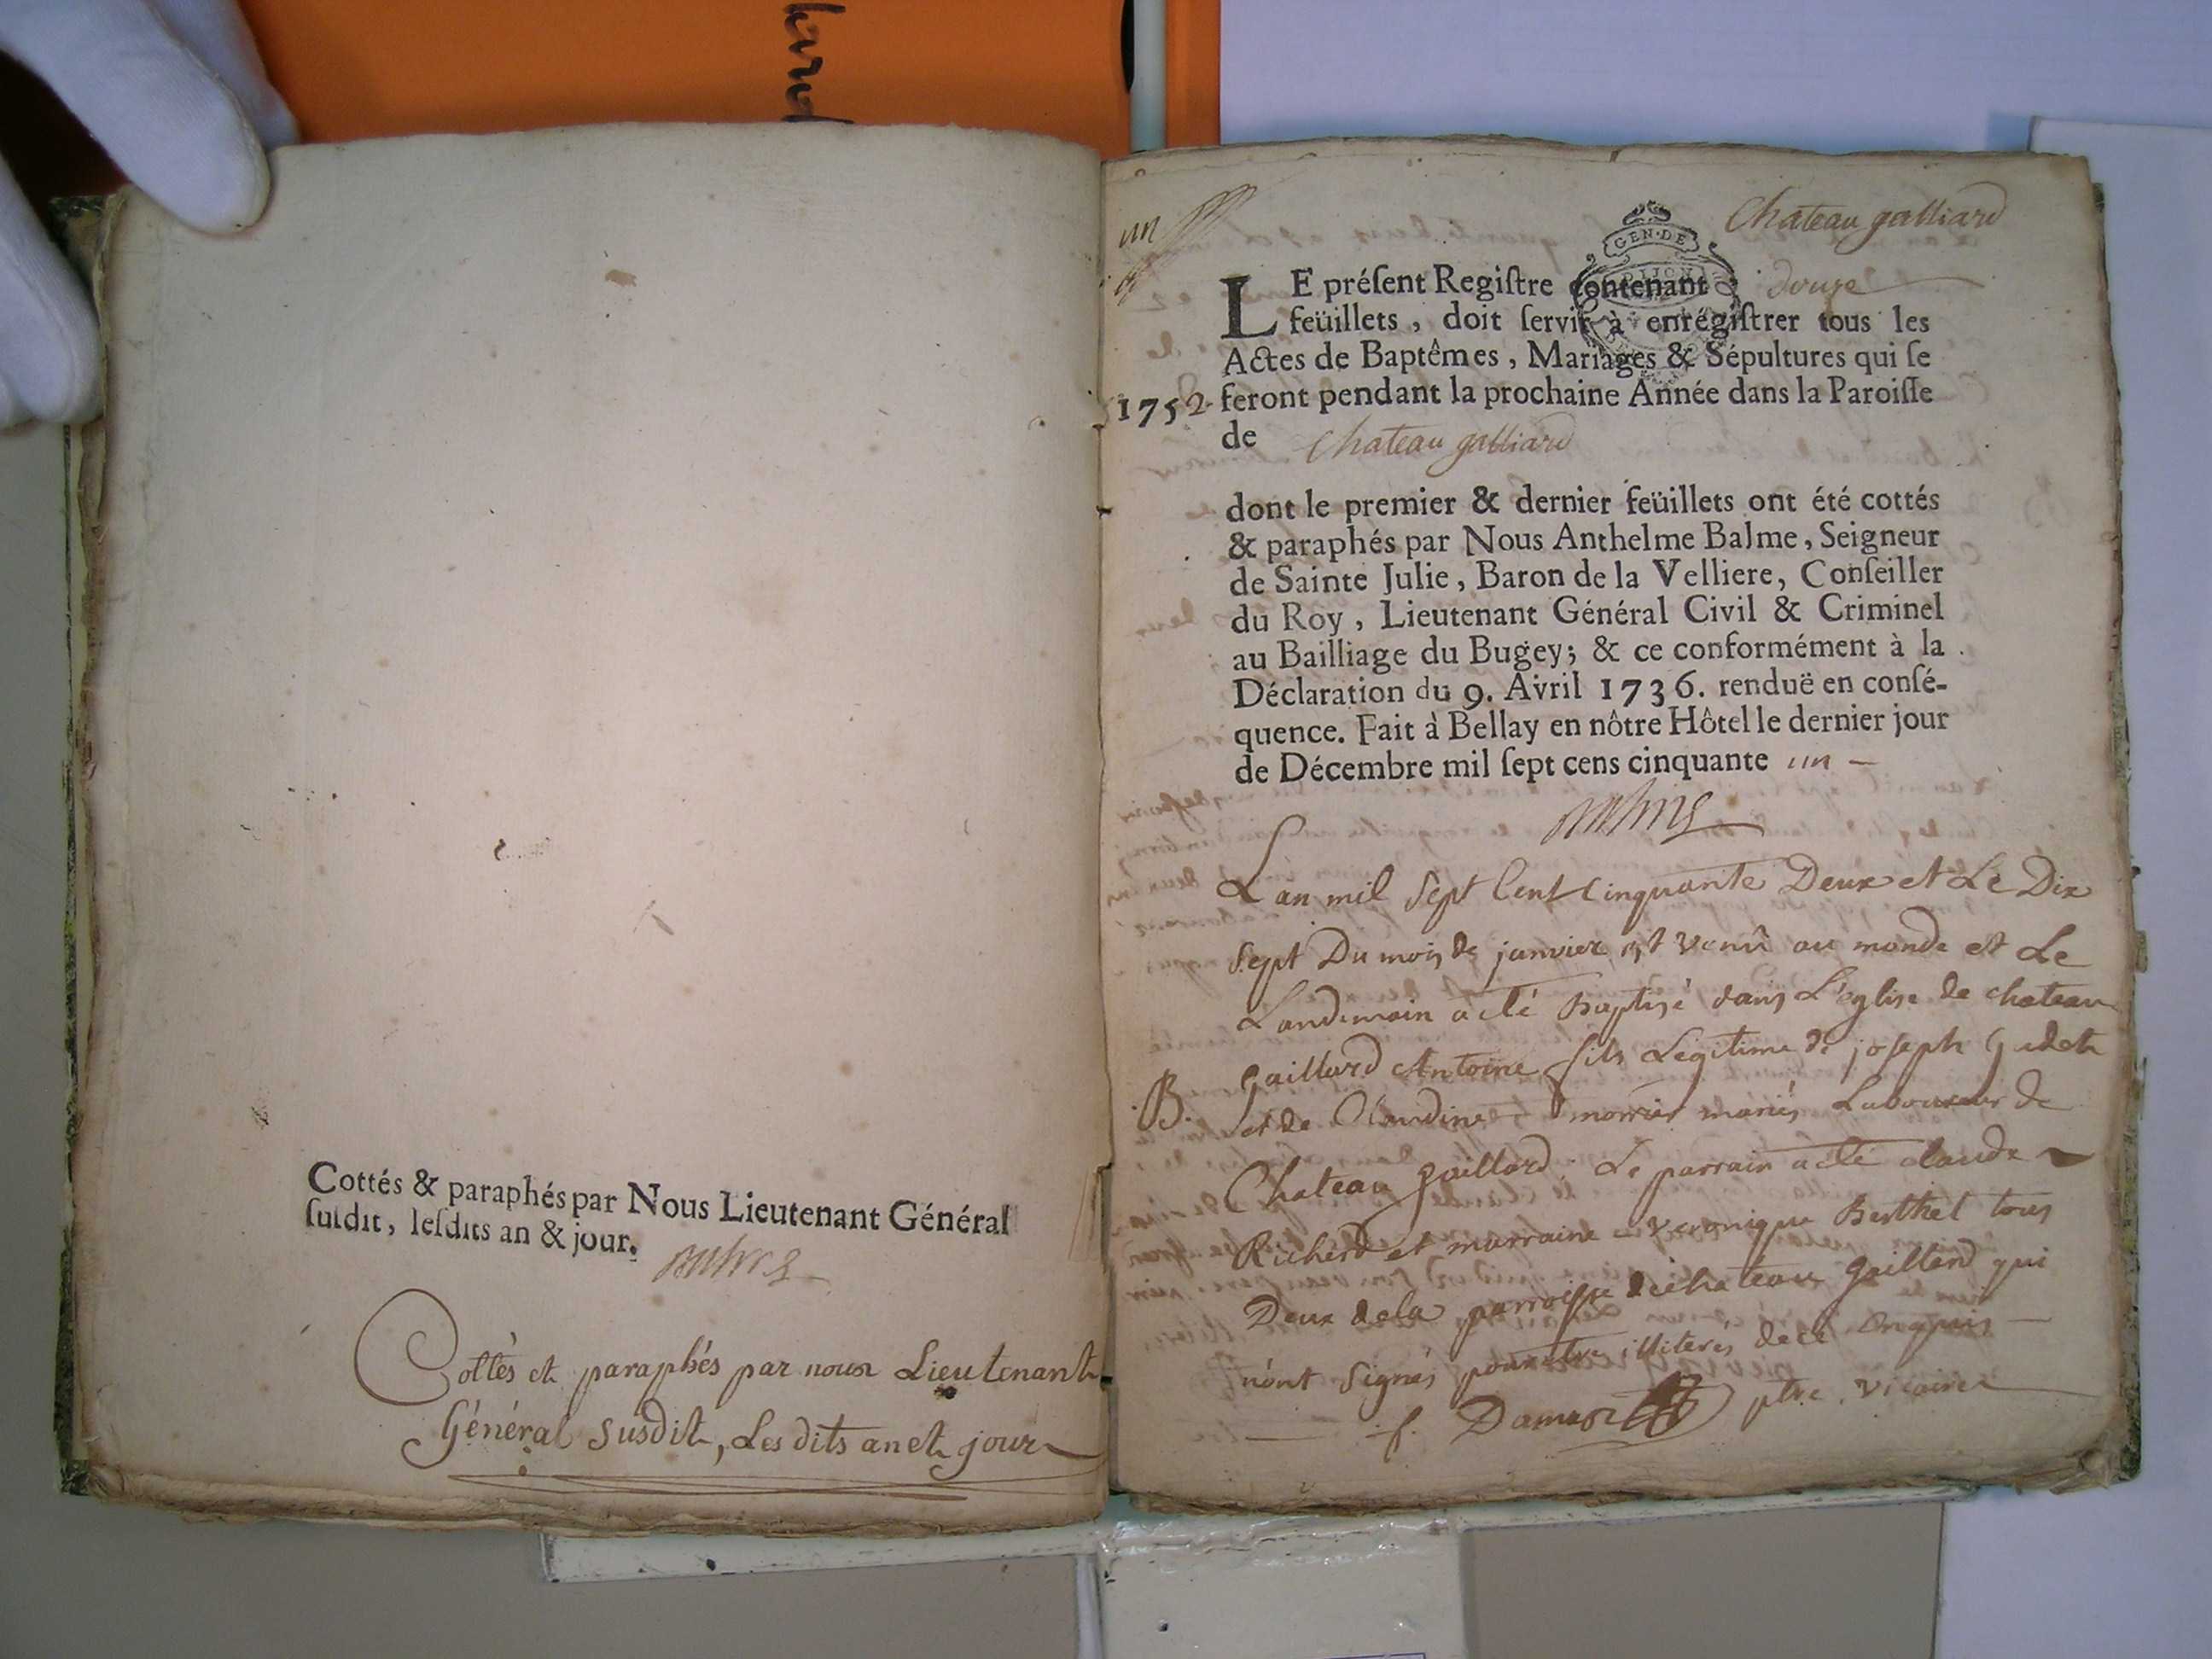 Cottés & paraphés par Nous Lieutenant Général
ſuſdit, leſdits an & jour.
Cottès et paraphés par nous Lieutenant
Général susdit, Les dits an et jour
un
Chateau galliard
GEN·DE
DIJON
LE préſent Regiſtre contenant douze
feüillets, doit ſervir à enrégiſtrer tous les
Actes de Baptêmes, Mariages & Sépultures qui ſe
1752 feront pendant la prochaine Année dans la Paroiſſe
de Chateau galliard
dont le premier & dernier feüillets ont été cottés
& paraphés par Nous Anthelme Balme, Seigneur
de Sainte Julie, Baron de la Velliere, Conſeiller
du Roy, Lieutenant Général Civil & Criminel
au Bailliage du Bugey; & ce conformément à la
Déclaration du 9. Avril 1736. renduë en conſé-
quence. Fait à Bellay en nôtre Hôtel le dernier jour
de Décembre mil ſept cens cinquante un
L'an mil Sept Cent Cinquante Deux et Le Dix
Sept Du mois de janvier est venû au monde et Le
Landemain a été Baptisé dans L'église de chateau
Gaillard Antoine fils Légitime de joseph
B. et de Claudine morrier mariés Laboureur de
Chateau gaillard. Le parrain a été claude
Richerd et marraine veronique Berthet tous
Deux de la parroisse de chateau gaillard qui
n'ont signés pour etre illiterés de ce enquis
f. ptre. vicaire